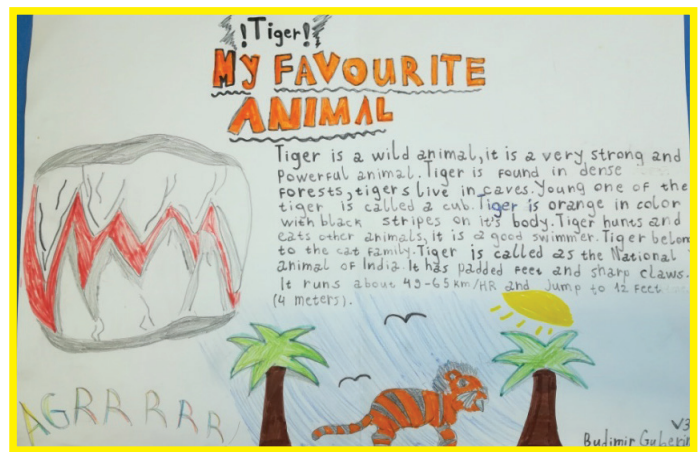 !Tiger!
MY FAVOURITE
ANIMAL
Tiger is a wild animal, it is a very strong and
powerful animal. Tiger is found in dense
forests, tigers live in caves. Young one of the
tiger is called a cub. Tiger is orange in color
with black stripes on it's body. Tiger hunts and
eats other animals, it is a good swimmer. Tiger belon
to the cat family. Tiger is called as the National
animal of India. It has padded feet and sharp claws.
It runs about 49-65 km/HR and jump to 12 feet
(4 meters).
AGRRRRR
V3
Budimir Guberin